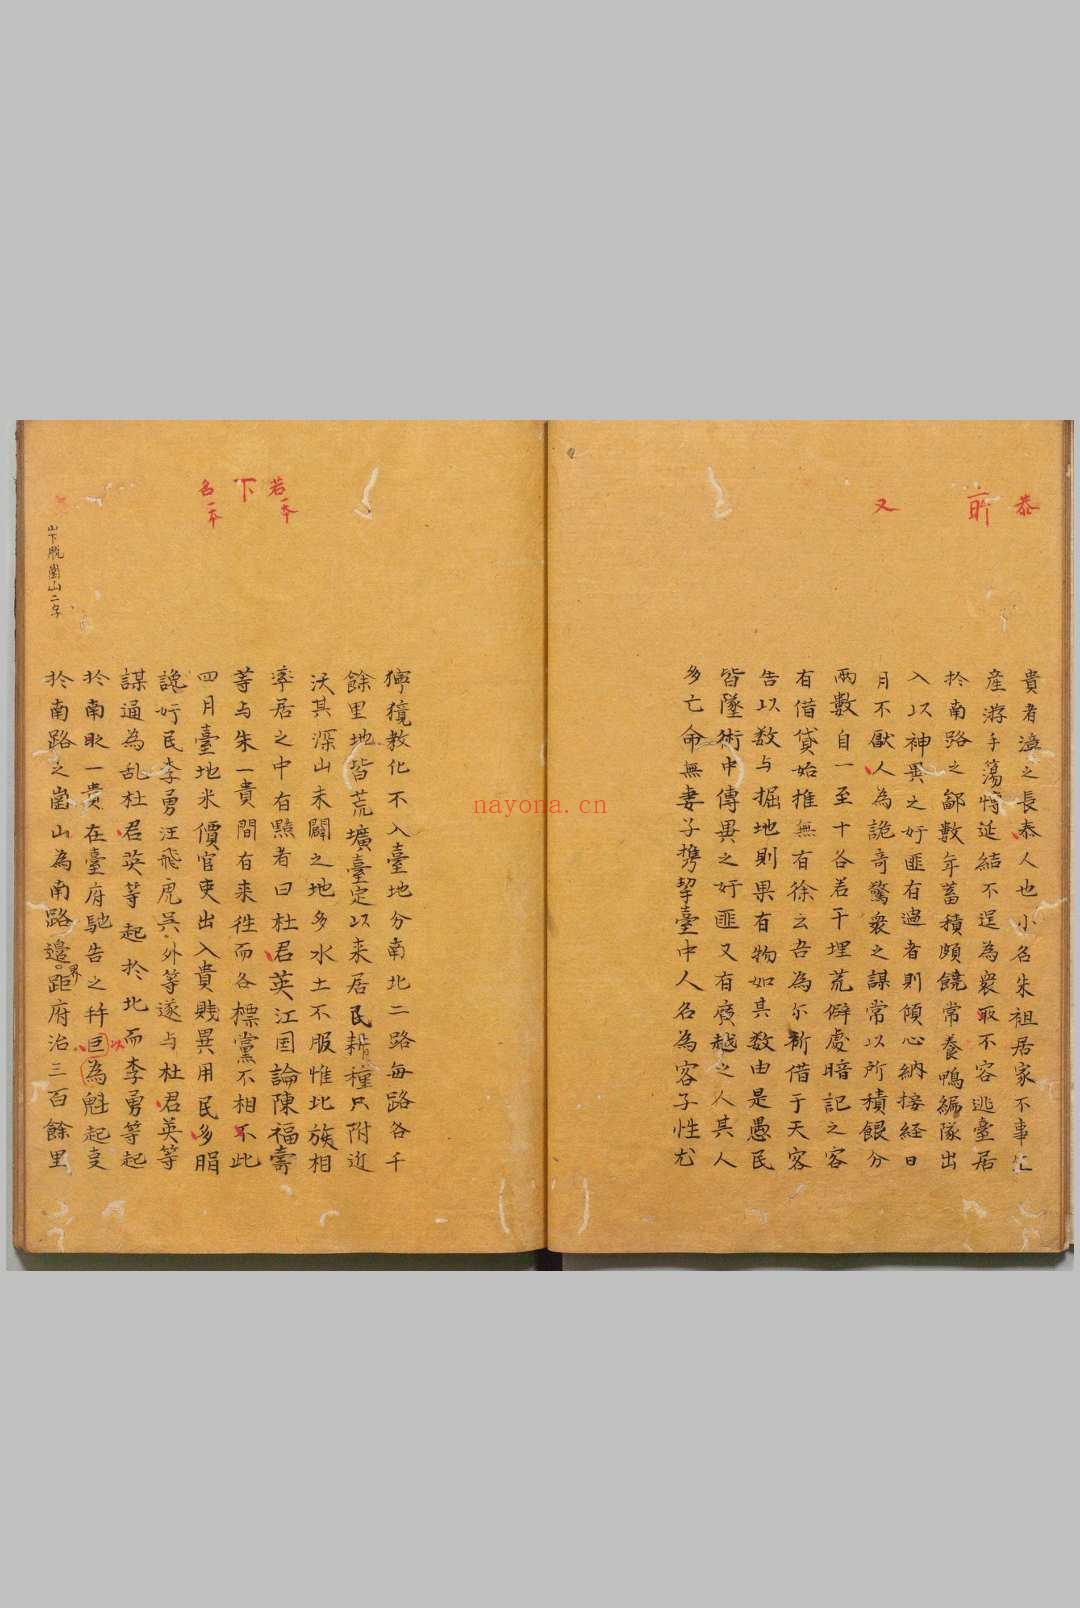 恭
𣂪
又
貴者漳之長泰人也小名朱祖居家不事
産游手蕩惰延結不逞為衆取不容逃臺居
於南路之鄙數年蓄積頗饒常養鴨編隊出
入以神異之奸匪有過者則傾心納接経日
月不猒人為詭奇驚衆之謀常以所積餽分
兩數自一至十各若干埋荒僻處暗記之客
有借貸始推無有徐云吾為尓祈借于天容
告以数与掘地則果有物如其数由是愚民
皆墜術中傳異之奸匪又有廣越之人其人
多亡命無妻子携挈臺中人名為客子性尤
若一本
下
名一本
山下脱崗山二字
獰獷教化不入臺地分南北二路每路各千
餘里地皆荒壙臺定以来居民耕種只附近
沃其深山未闢之地多水土不服惟此族相
率居之中有黠者曰杜君英江国論陳福壽
等与朱一貴間有来徃而各標黨不相不此
四月臺地米價官吏出入貴賤異用民多脶
讒奸民李勇汪飛虎呉外等遂与杜君英等
謀通為乱杜君英等起於北而李勇等起
於南歐一貴在臺府馳告之秤巨以為魁起支
於南路之崗山為南路邉界距府治三百餘里
nayona.cn